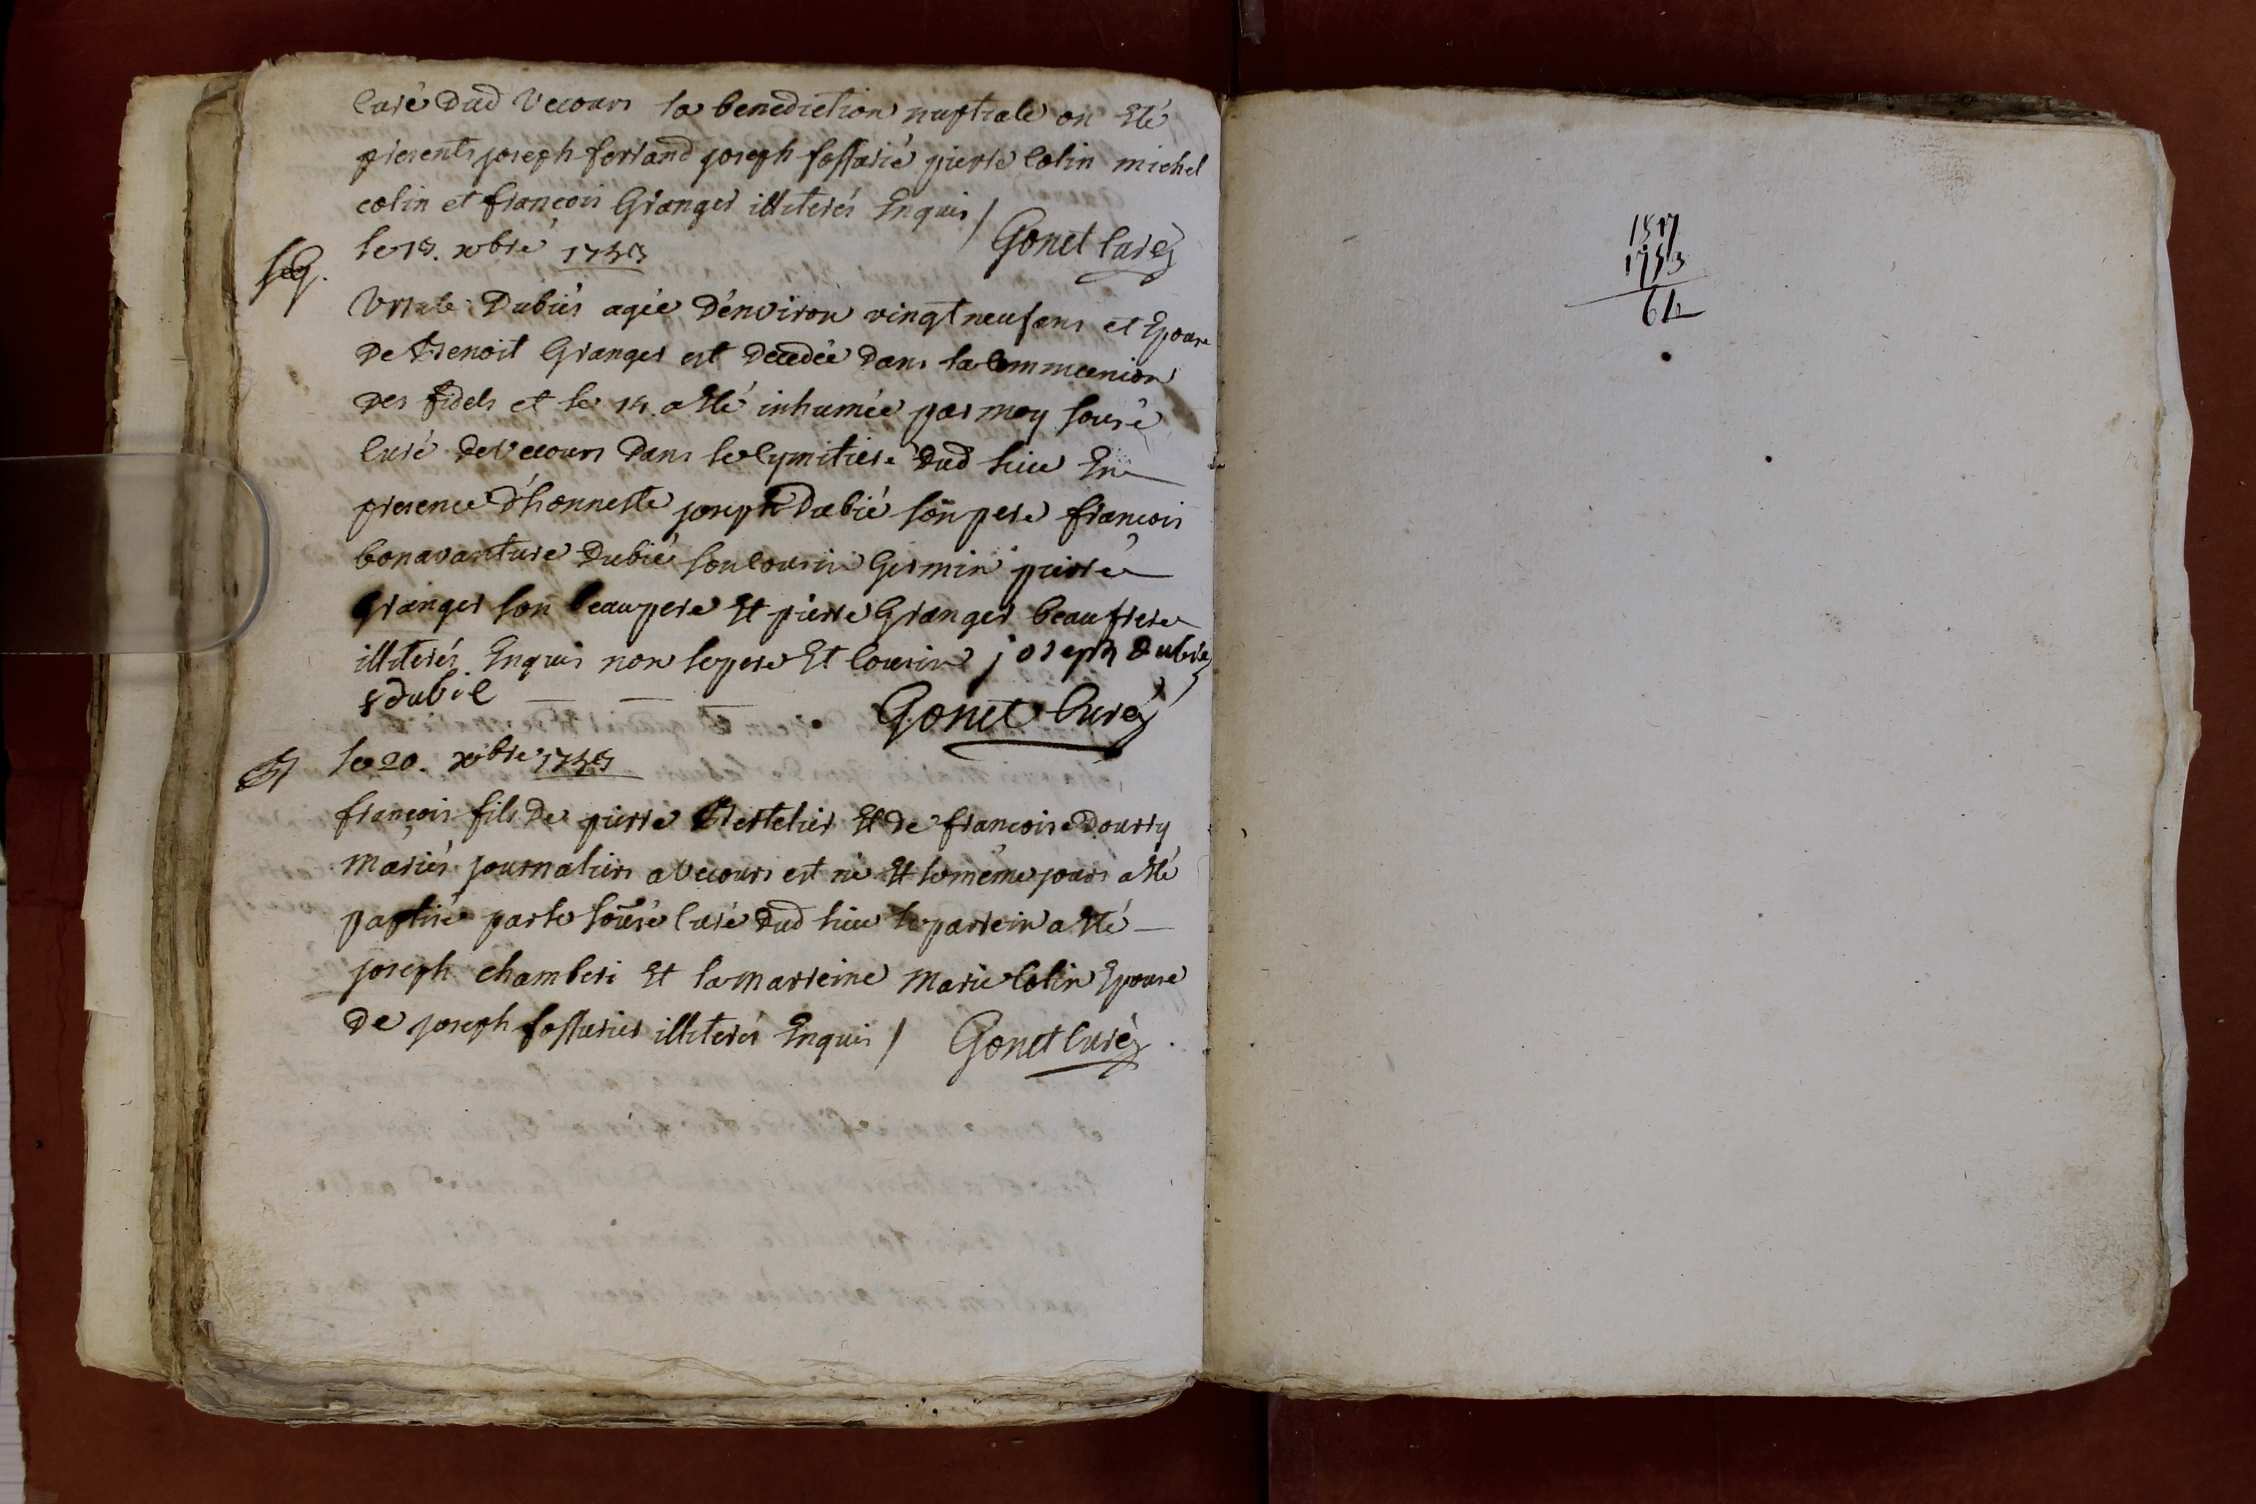 Curé dud Vecours la benediction nuptiale on Eté
presents joseph ferrand joseph fossurié pierre Colin michel
colin et françois Granger illiterés Enquis / Gonet Curé
Sep. le 13. xbre 1753
Ursule Dubiés agée d'environ vingt neuf ans et Epouse
De Benoit Granger est decedée Dans la Communion
Des fidels et le 14. a Eté inhumée par moy sousé
Curé de Vecours Dans le Cymitiere dud lieu En
presence d'honneste joseph Dubié son pere françois
bonavanture Dubié son Cousin Germin pierre
Granger son beaupere Et pierre Granger beaufrere
illiterés Enquis non le pere Et Cousin joseph dubie
f dubie Gonet Curé
B le 20. xbre 1753
françois fils De pierre Bertelier Et De françoise Dourry
mariés journaliers a Vecours est né Et le même jours a Eté
paptisé par le sousé Curé dud lieu le parrein a Eté
joseph chamberi Et la marreine Marie Colin Epouse
De joseph fossurier illiterés Enquis / Gonet Curé
1817
1753
64